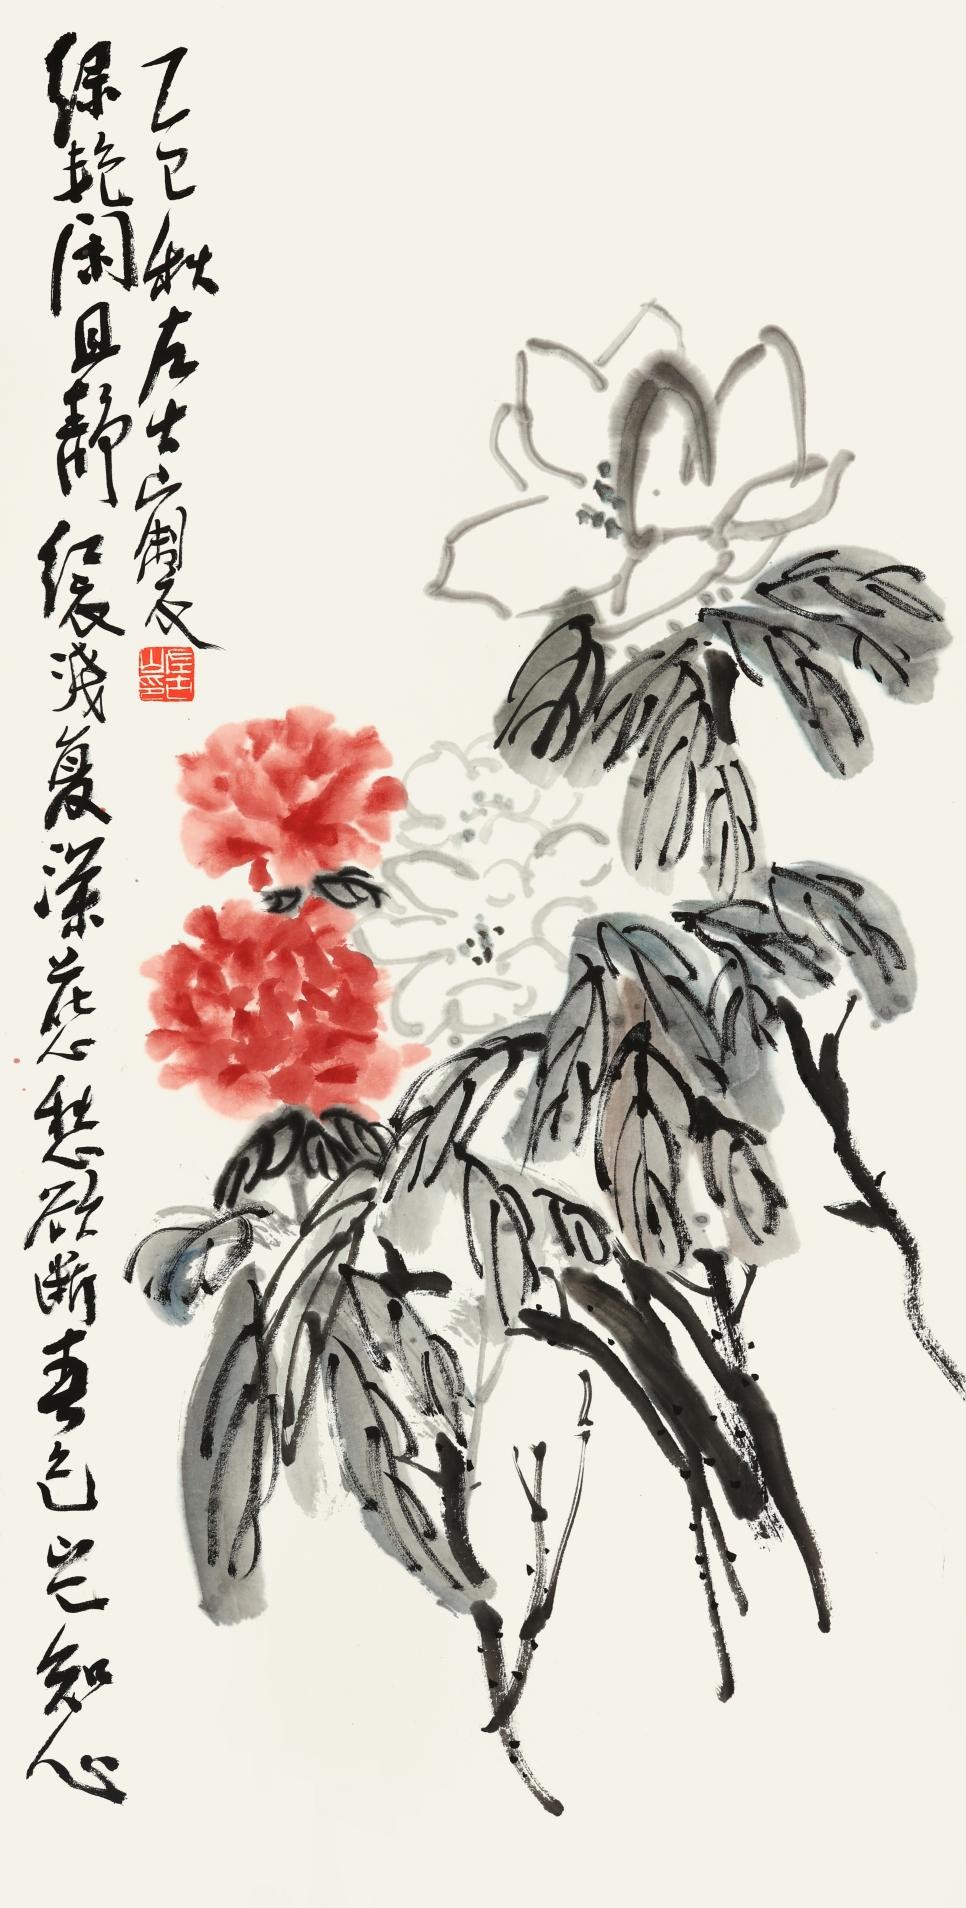 绿艳闲且静红衣浅复深花心愁欲断春色岂知心
乙巳秋左